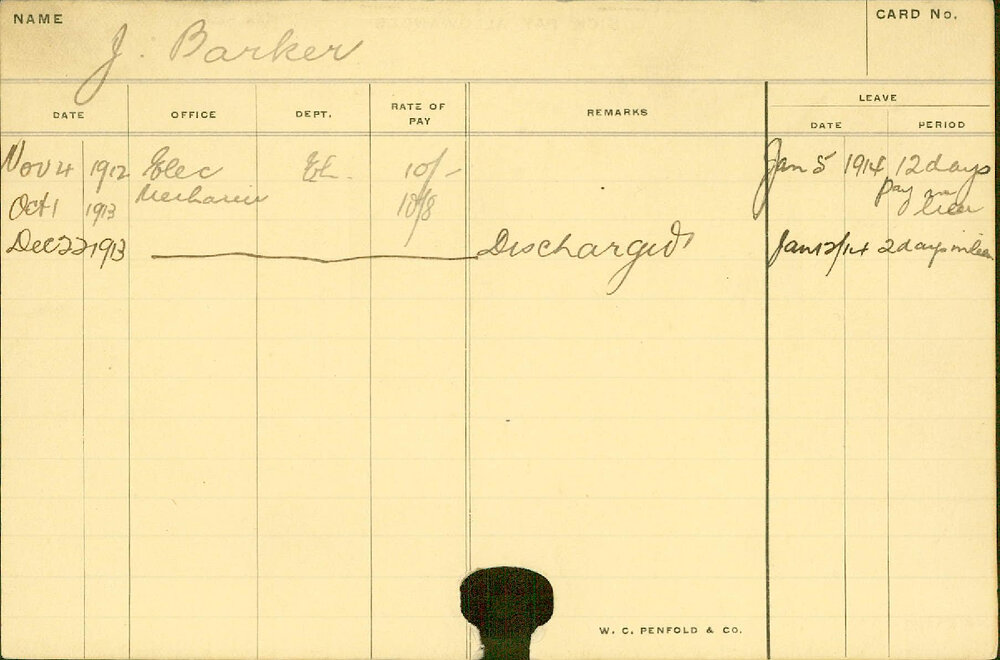 NAME
CARD No.
J. Barker
LEAVE
DATE OFFICE DEPT. RATE OF PAY REMARKS DATE PERIOD
Nov 4 1912 Elec El. 10/- Jan 5 1914 12 days
Mechanic pay in
Oct 1 1913 10/8 lieu
Dec 22 1913 Discharged Jan 12/14 2 days in lieu
W. C. PENFOLD & CO.